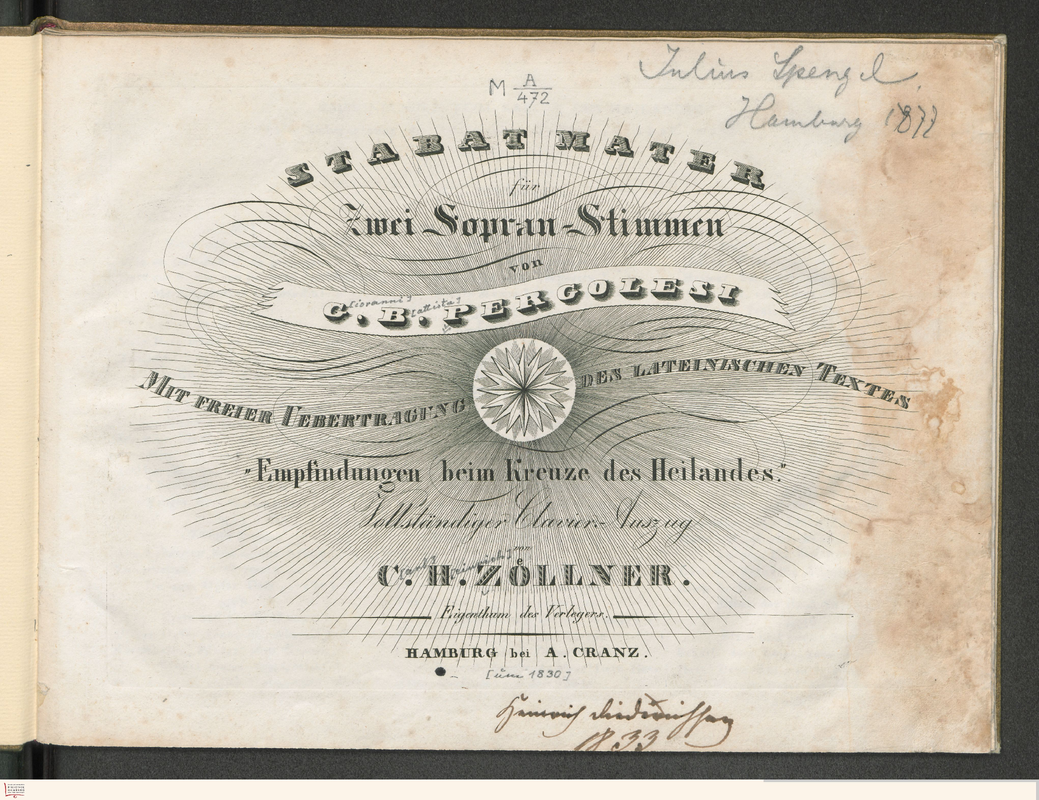 Julius Spengel
Hamburg 1877
M A/472
STABAT MATER
für
Zwei Sopran-Stimmen
von
G. B. PERGOLESI
[iovanni] [attista]
MIT FREIER UEBERTRAGUNG DES LATEINISCHEN TEXTES
"Empfindungen beim Kreuze des Heilandes."
Vollständiger Clavier-Auszug
von
C. H. ZÖLLNER.
[arl] [einrich]
Eigenthum des Verlegers.
HAMBURG bei A. CRANZ.
[um 1830]
Heinrich Diederichsen
1833